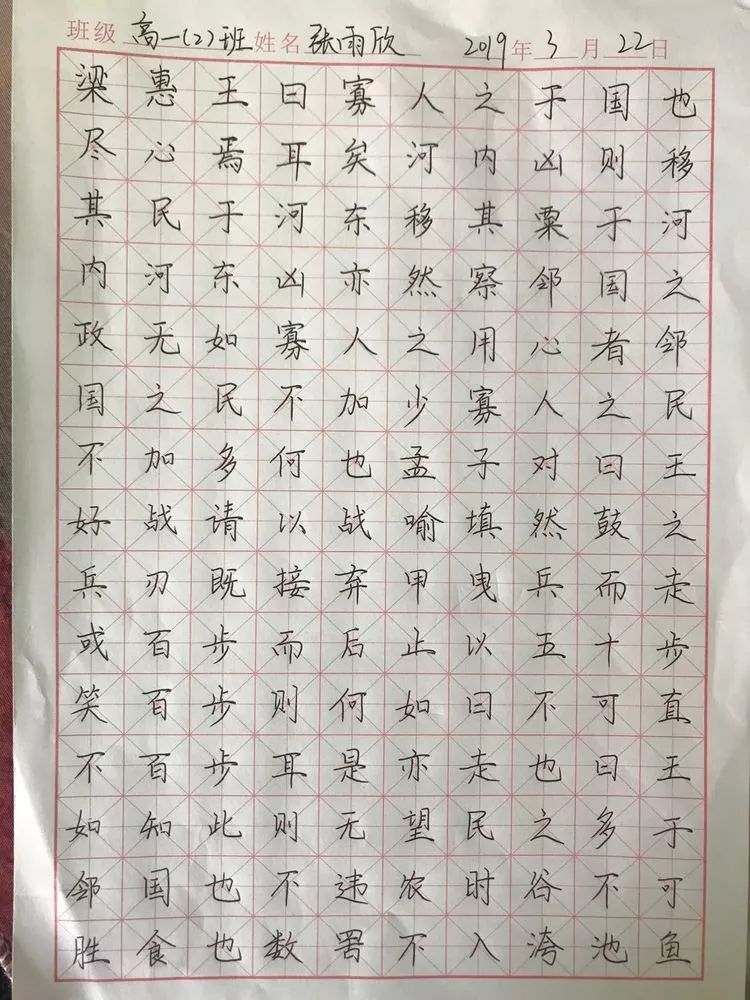 班级 高一(2)班 姓名 张雨欣 2019年3月22日
梁惠王曰寡人之于国也
尽心焉耳矣河内凶则移
其民于河东移其粟于河
内河东凶亦然察邻国之
政无如寡人之用心者邻
国之民不加少寡人之民
不加多何也孟子对曰王
好战请以战喻填然鼓之
兵刃既接弃甲曳兵而走
或百步而后止以五十步
笑百步则何如曰不可直
不百步耳是亦走也曰王
如知此则无望民之多于
邻国也不违农时谷不可
胜食也数罟不入洿池鱼